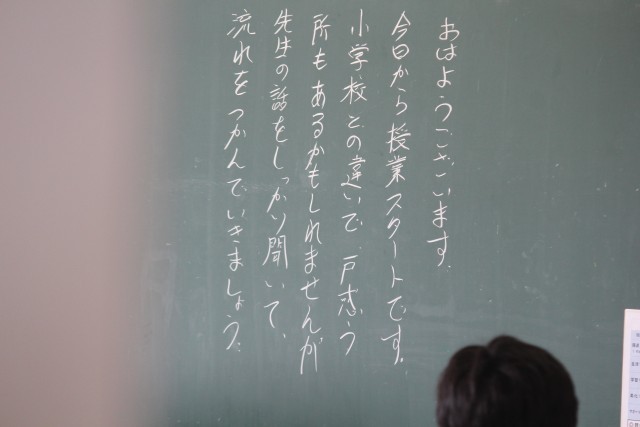 おはようございます。
今日から授業スタートです。
小学校との違いで、戸惑う
所もあるかもしれませんが
先生の話をしっかり聞いて、
流れをつかんでいきましょう。